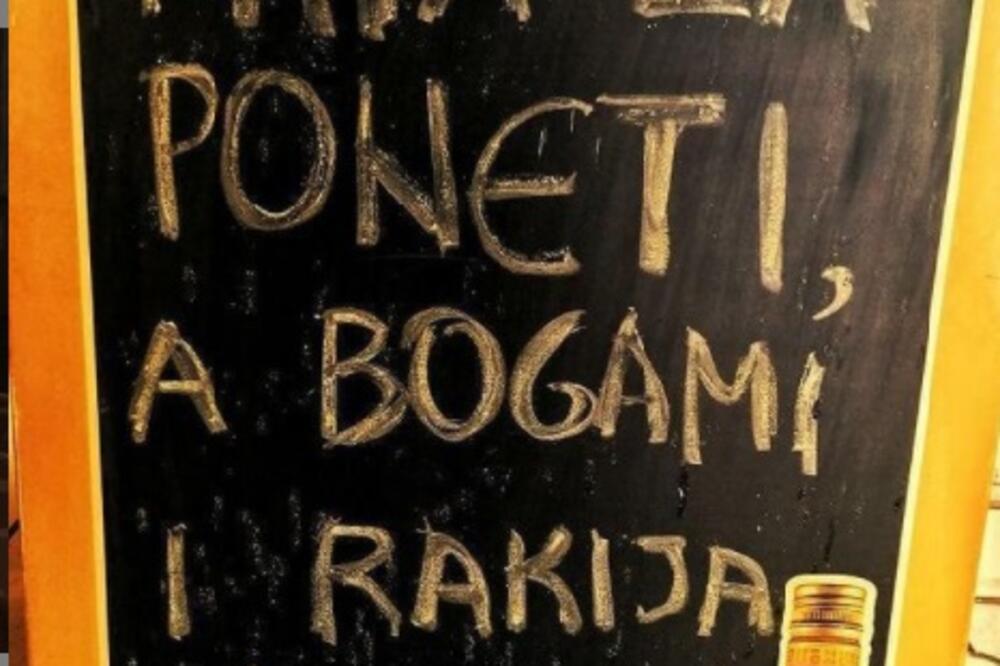 ZA
PONETI,
A BOGAMI
I RAKIJA